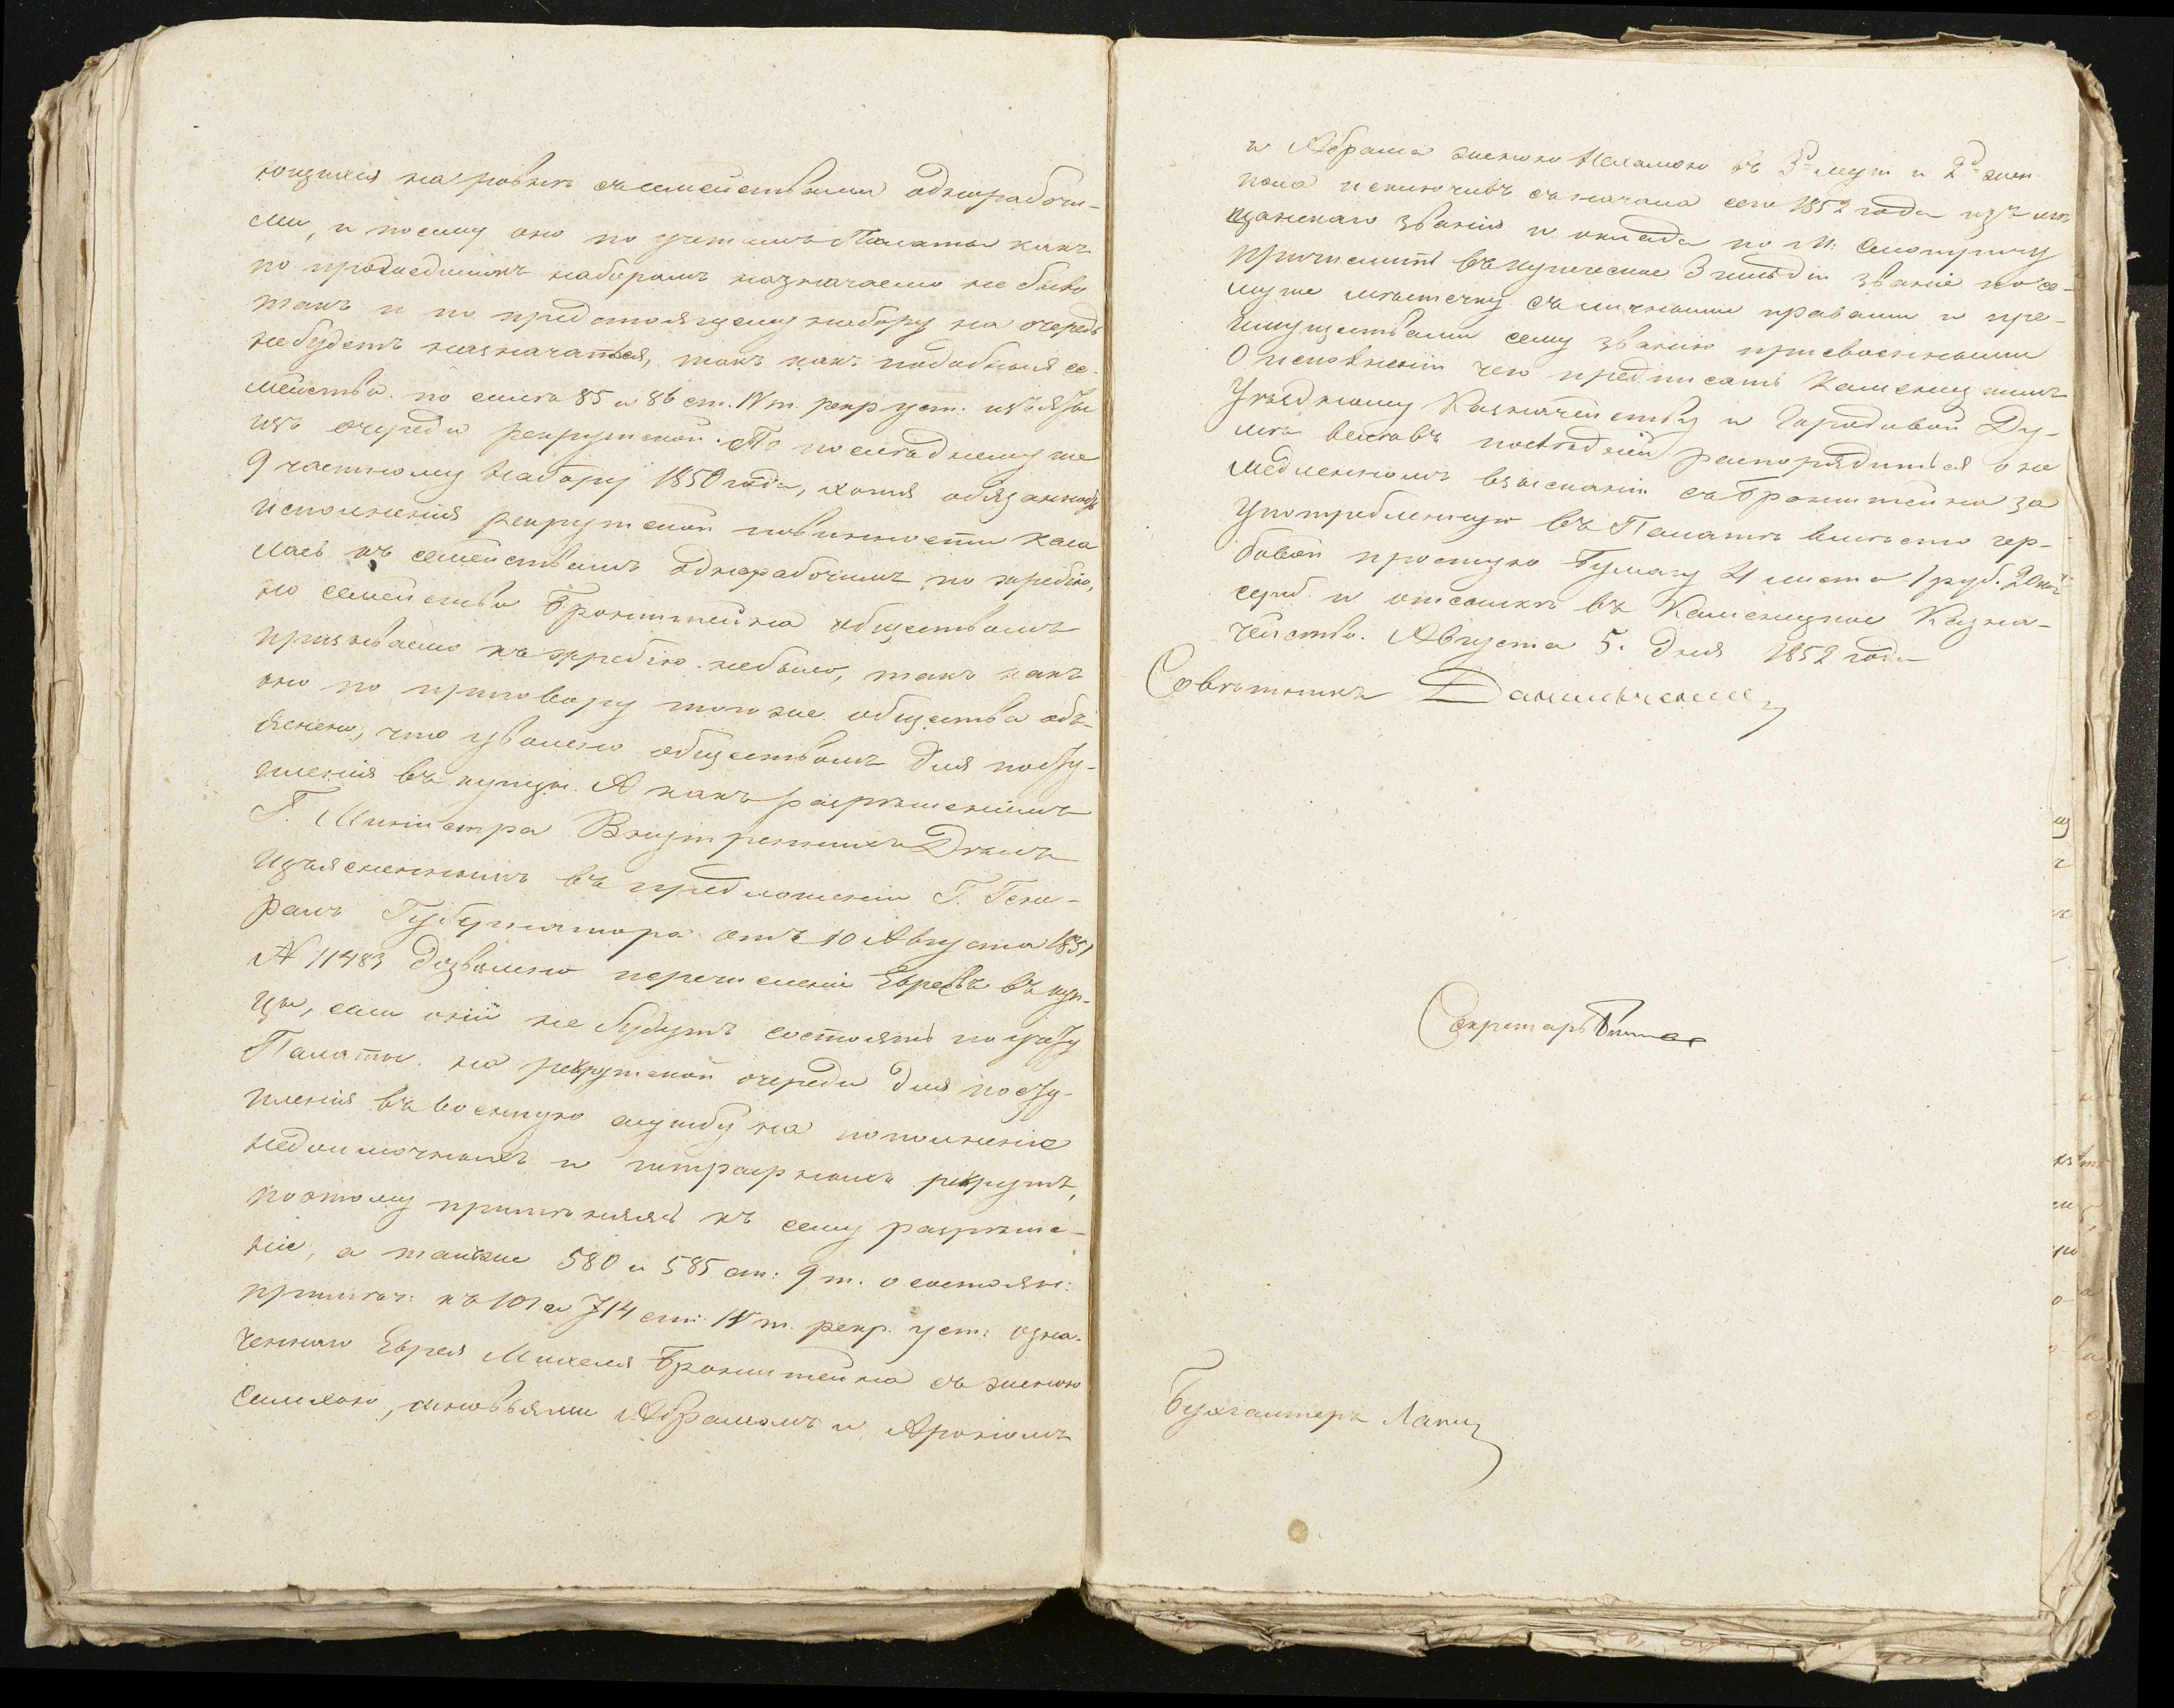 ющихся на ровнѣ съ семействами однорабочи-
ми, и посему оно по учетамъ Палаты какъ
по прошедшимъ наборамъ назначаемо не было
такъ и по предстоящему набору на очередь
небудетъ назначаться, такъ какъ подобныя се-
мейства по силѣ 85 и 86 ст. IV т. рекр уст: изъяты
изъ очереди рекрутской. По послѣднему же
9 частному Набору 1850 года, хотя обязанность
исполненія рекрутской повинности каса
лась къ семействамъ однорабочимъ по жребію,
но семейство Бронштейна обществомъ
призываемо къ жребію небыло, такъ какъ
оно по приговору того же общества объ-
яснено, что уволено обществомъ для посту-
пленія въ купцы. А какъ разрѣшеніемъ
Г. Министра Внутреннихъ Дѣлъ
изъясненнымъ въ предложеніи Г. Гене-
ралъ Губернатора отъ 10 Августа 1851
№ 11483 дозволено перечисленіе Евреевъ въ куп-
цы, если оніи не будутъ состоять по учету
Палаты на рекрутской очереди для посту-
пленія въ военную службу на пополненіе
недоимочныхъ и штрафныхъ рекрутъ,
поэтому примѣняясь къ сему разрѣше-
ніе, а также 580 и 585 ст: 9 т. о состоян:
примѣч: къ 101 и 714 ст: IV т. рекр. уст: озна-
ченнаго Еврея Михеля Бронштейна съ женою
Симхою, сыновьями Абрамомъ и Арономъ
и Абрама женою Нехамою въ 3<sup>х</sup> муж и 2<sup>х</sup> жен
пола исключивъ съ начала сего 1852 года изъ мѣ
щанскаго званія и оклада по м:
причислить въ купеческое 3 гильдіи званіе по се-
му же мѣстечку съ личными правами и пре-
имуществами сему званію присвоенными
О исполненіи чего предписать Каменецкимъ
Уѣздному Казначейству и Городовой Ду-
мѣ велѣвъ послѣдней распорядиться о не
медленномъ взысканіи съ Бронштейна за
употребленную въ Палатѣ вмѣсто гер-
бовой простую бумагу 4 листа 1 руб. 20 коп
сереб. и отсылкѣ въ Каменецкое Казна-
чейство. Августа 5. дня 1852 года
Совѣтникъ Данильченко
Секретарь
Бухгалтеръ